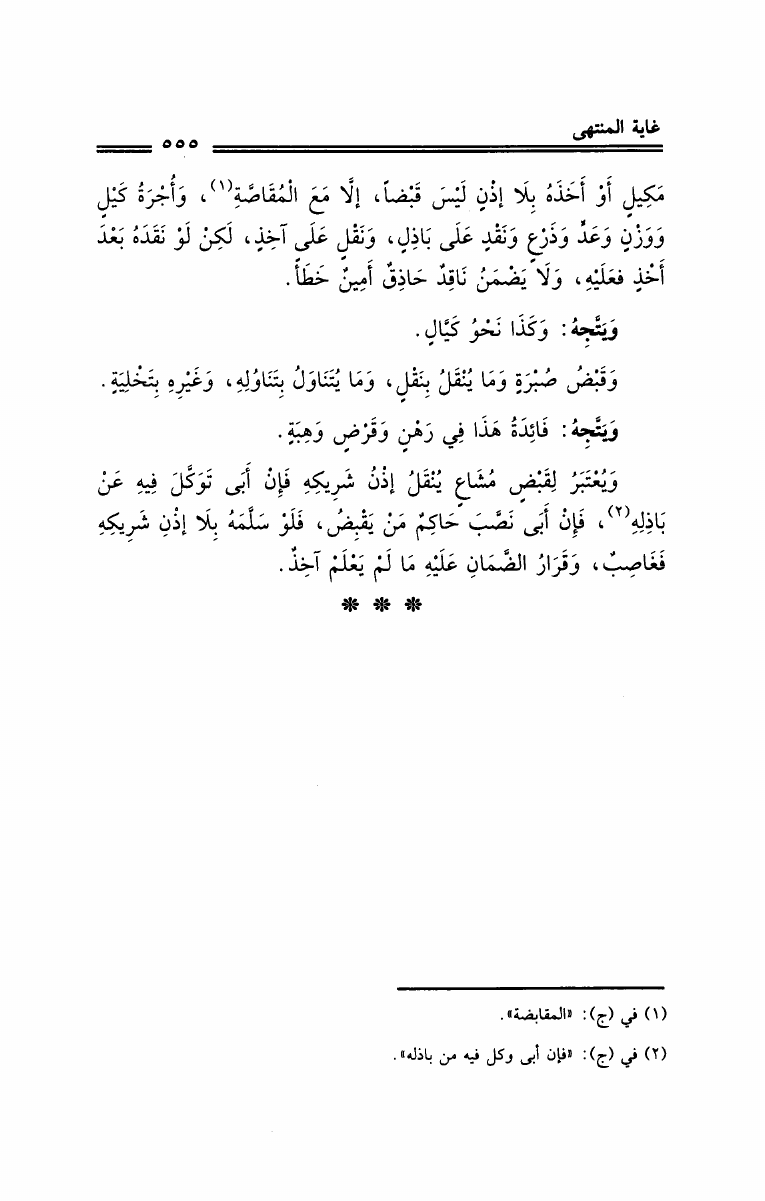 غاية المنتهى
٥٥٥
مَكِيلٍ أَوْ أَخَذَهُ بِلَا إذْنٍ لَيْسَ قَبْضاً، إلَّا مَعَ الْمُقَاصَّةِ(١)، وَأُجْرَةُ كَيْلٍ
وَوَزْنٍ وَعَدٍّ وَذَرْعٍ وَنَقْدٍ عَلَى بَاذِلٍ، وَنَقْلٍ عَلَى آخِذٍ، لَكِنْ لَوْ نَقَدَهُ بَعْدَ
أَخْذٍ فعَلَيْهِ، وَلَا يَضْمَنُ نَاقِدٌ حَاذِقٌ أَمِينٌ خَطَأً.
وَيَتَّجِهُ: وَكَذَا نَحْوُ كَيَّالٍ.
وَقَبْضُ صُبْرَةٍ وَمَا يُنْقَلُ بِنَقْلٍ، وَمَا يُتَنَاوَلُ بِتَنَاوُلِهِ، وَغَيْرِهِ بِتَخْلِيَةٍ.
وَيَتَّجِهُ: فَائِدَةُ هَذَا فِي رَهْنٍ وَقَرْضٍ وَهِبَةٍ.
وَيُعْتَبَرُ لِقَبْضِ مُشَاعٍ يُنْقَلُ إذْنُ شَرِيكِهِ فَإِنْ أَبَى تَوَكَّلَ فِيهِ عَنْ
بَاذِلِهِ(٢)، فَإِنْ أَبَى نَصَّبَ حَاكِمٌ مَنْ يَقْبِضُ، فَلَوْ سَلَّمَهُ بِلَا إذْنِ شَرِيكِهِ
فَغَاصِبٌ، وَقَرَارُ الضَّمَانِ عَلَيْهِ مَا لَمْ يَعْلَمْ آخِذٌ.
* * *
(١) في (ج): «المقابضة».
(٢) في (ج): «فإن أبى وكل فيه من باذله».